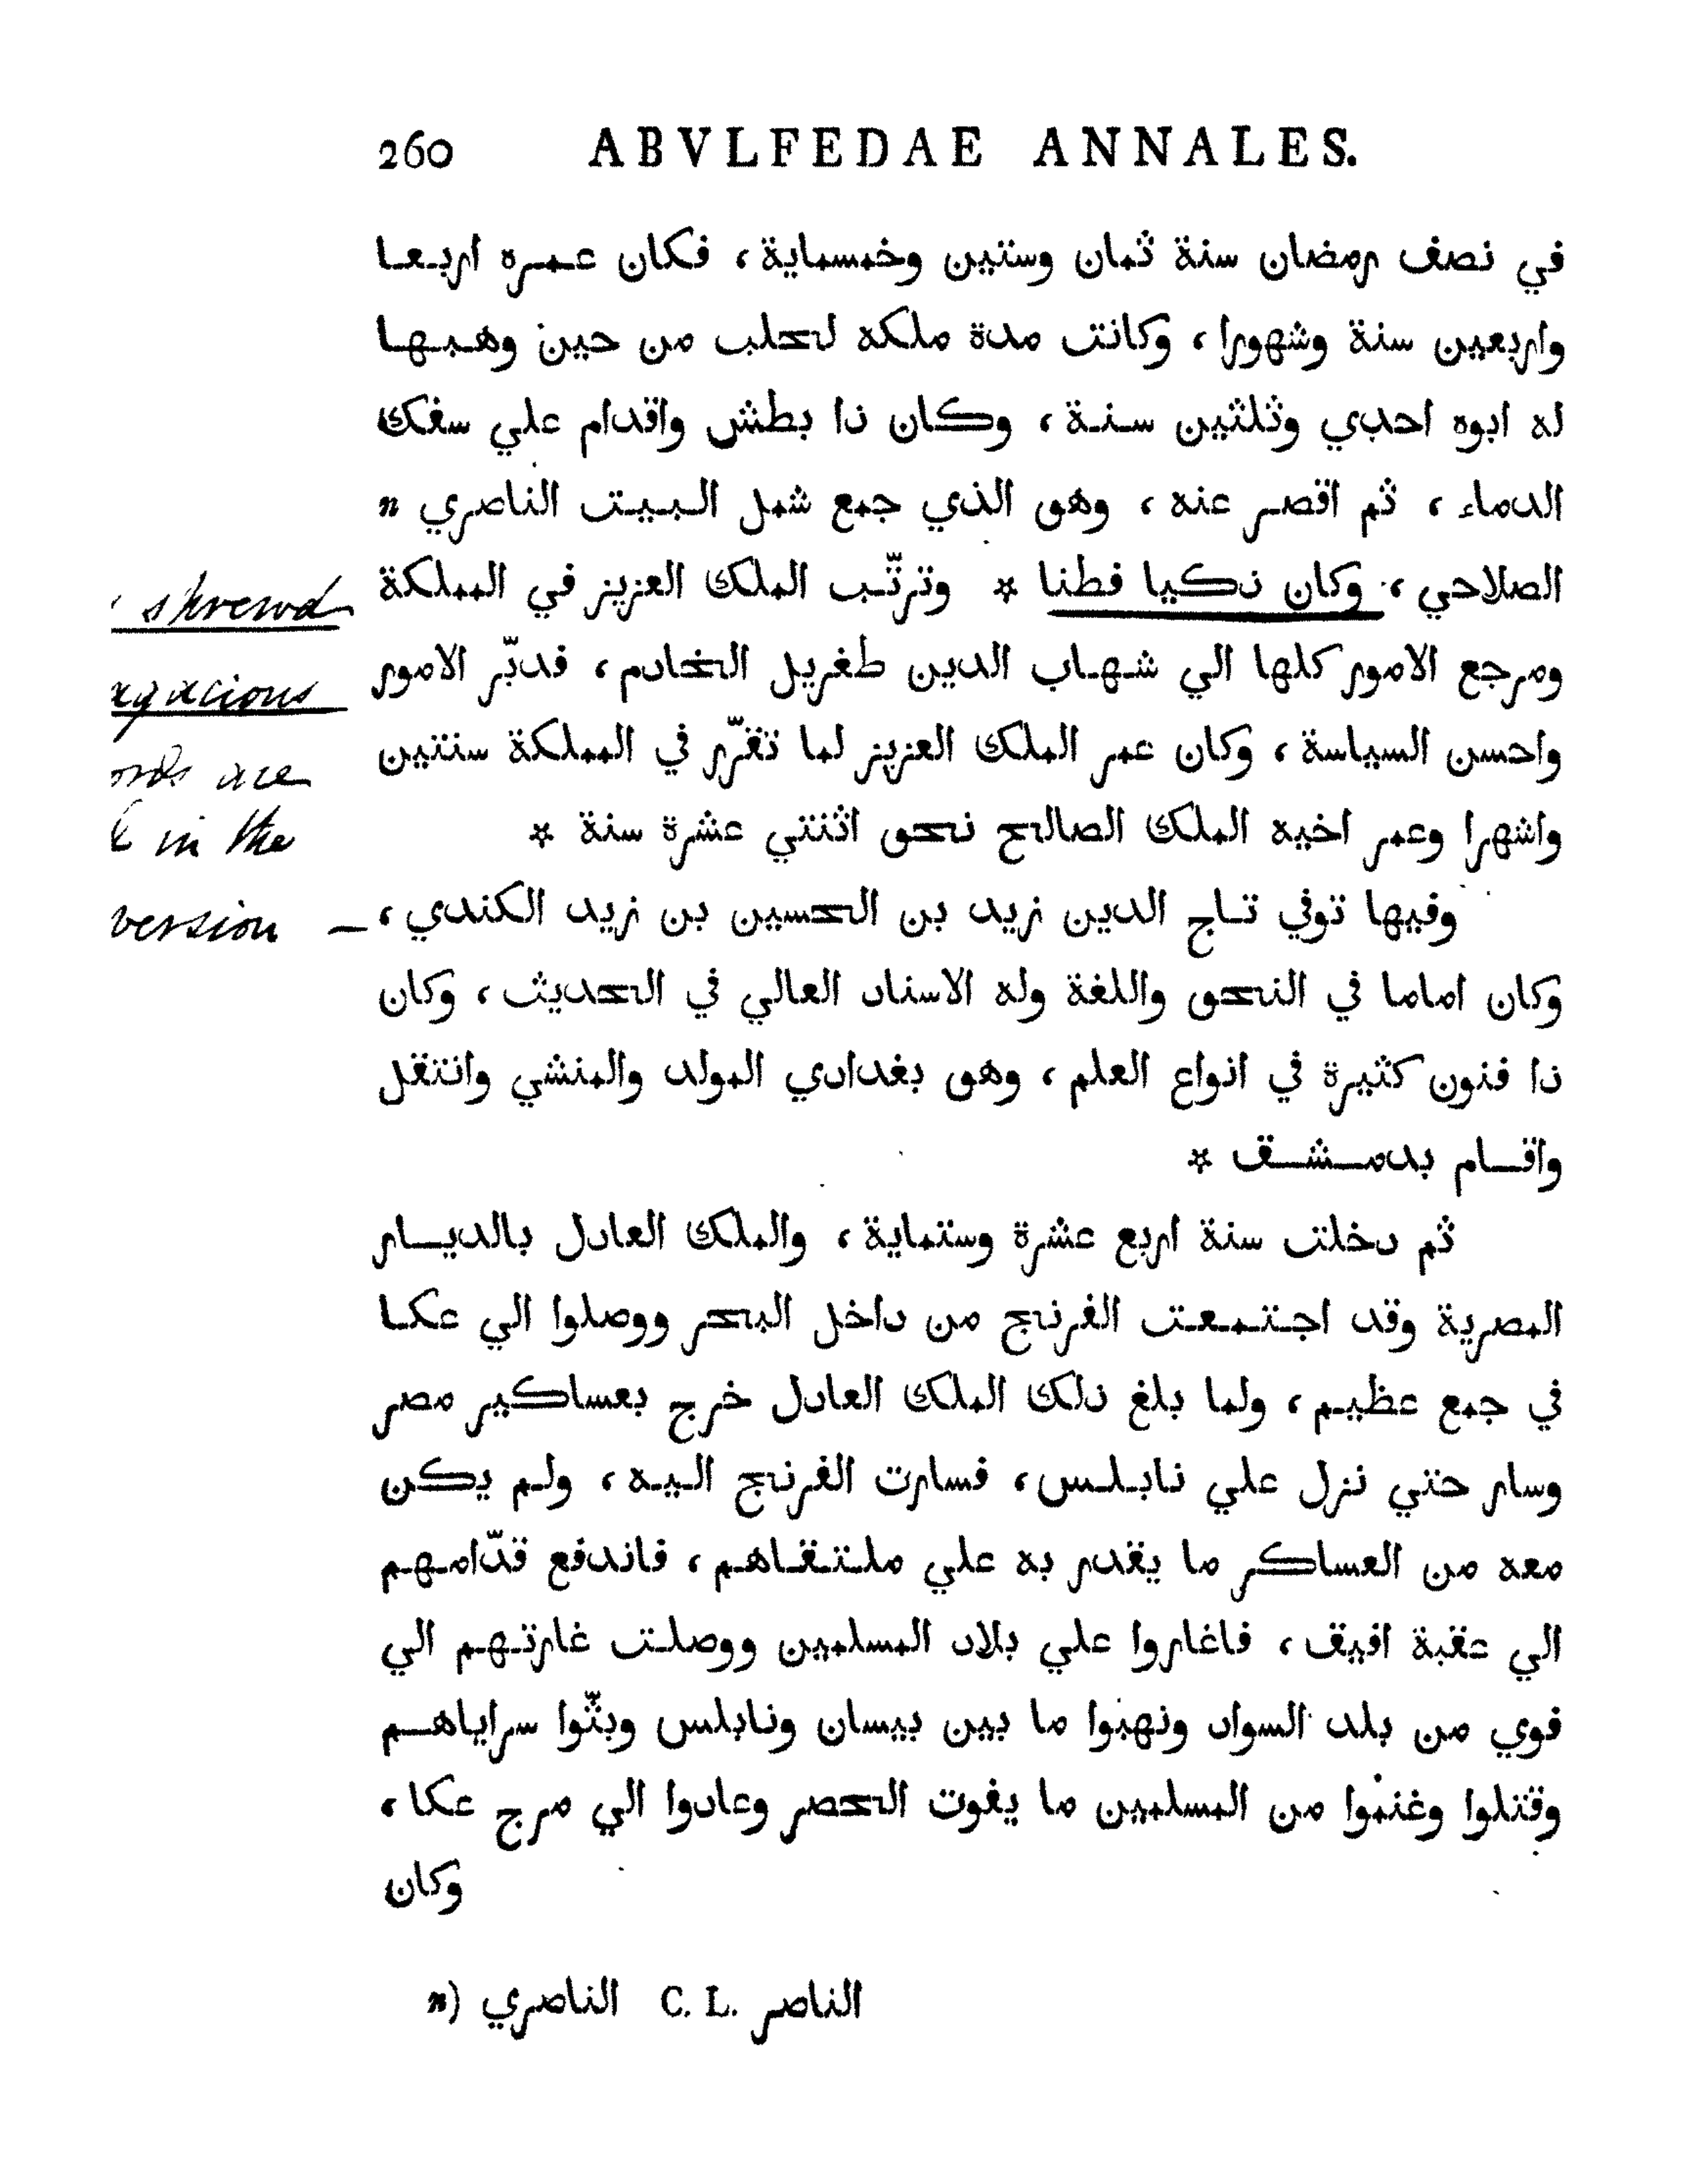 260 ABVLFEDAE ANNALES.
في نصف رمضان سنة ثمان وستين وخمسماية ، فكان عمره اربعا
واربعين سنة وشهورا ، وكانت مدة ملكه لحلب من حين وهبها
له ابوه احدي وثلثين سنة ، وكان ذا بطش واقدام علي سفك
الدماء ، ثم اقصر عنه ، وهو الذي جمع شمل البيت الناصري n
الصلاحي ، وكان ذكيا فطنا * وترتّب الملك العزيز في المملكة
shrewd
ومرجع الامور كلها الي شهاب الدين طغريل الخادم ، فدبّر الامور
agacious
واحسن السياسة ، وكان عمر الملك العزيز لما تقرّر في المملكة سنتين
ords are
واشهرا وعمر اخيه الملك الصالح نحو اثنتي عشرة سنة *
in the
وفيها توفي تاج الدين زيد بن الحسين بن زيد الكندي ،
version —
وكان اماما في النحو واللغة وله الاسناد العالي في الحديث ، وكان
ذا فنون كثيرة في انواع العلم ، وهو بغدادي المولد والمنشي وانتقل
واقام بدمشق *
ثم دخلت سنة اربع عشرة وستماية ، والملك العادل بالديار
المصرية وقد اجتمعت الفرنج من داخل البحر ووصلوا الي عكا
في جمع عظيم ، ولما بلغ ذلك الملك العادل خرج بعساكير مصر
وسار حتي نزل علي نابلس ، فسارت الفرنج اليه ، ولم يكن
معه من العساكر ما يقدر به علي ملتقاهم ، فاندفع قدّامهم
الي عقبة افيق ، فاغاروا علي بلاد المسلمين ووصلت غارتهم الي
نوي من بلد السواد ونهبوا ما بين بيسان ونابلس وبثّوا سراياهم
وقتلوا وغنموا من المسلمين ما يفوت الحصر وعادوا الي مرج عكا ،
وكان
n) الناصري C. L. الناصر